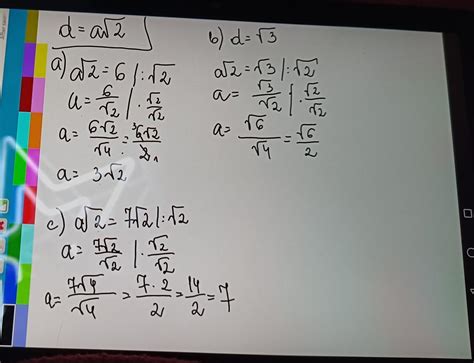 d = a√2
a) a√2 = 6 |:√2
a = 6/√2 | · √2/√2
a = 6√2/√4 = 6√2/2
a = 3√2
b) d = √3
a√2 = √3 |:√2
a = √3/√2 | · √2/√2
a = √6/√4 = √6/2
c) a√2 = 7√2 |:√2
a = 7√2/√2 | · √2/√2
a = 7√4/√4 = 7·2/2 = 14/2 = 7